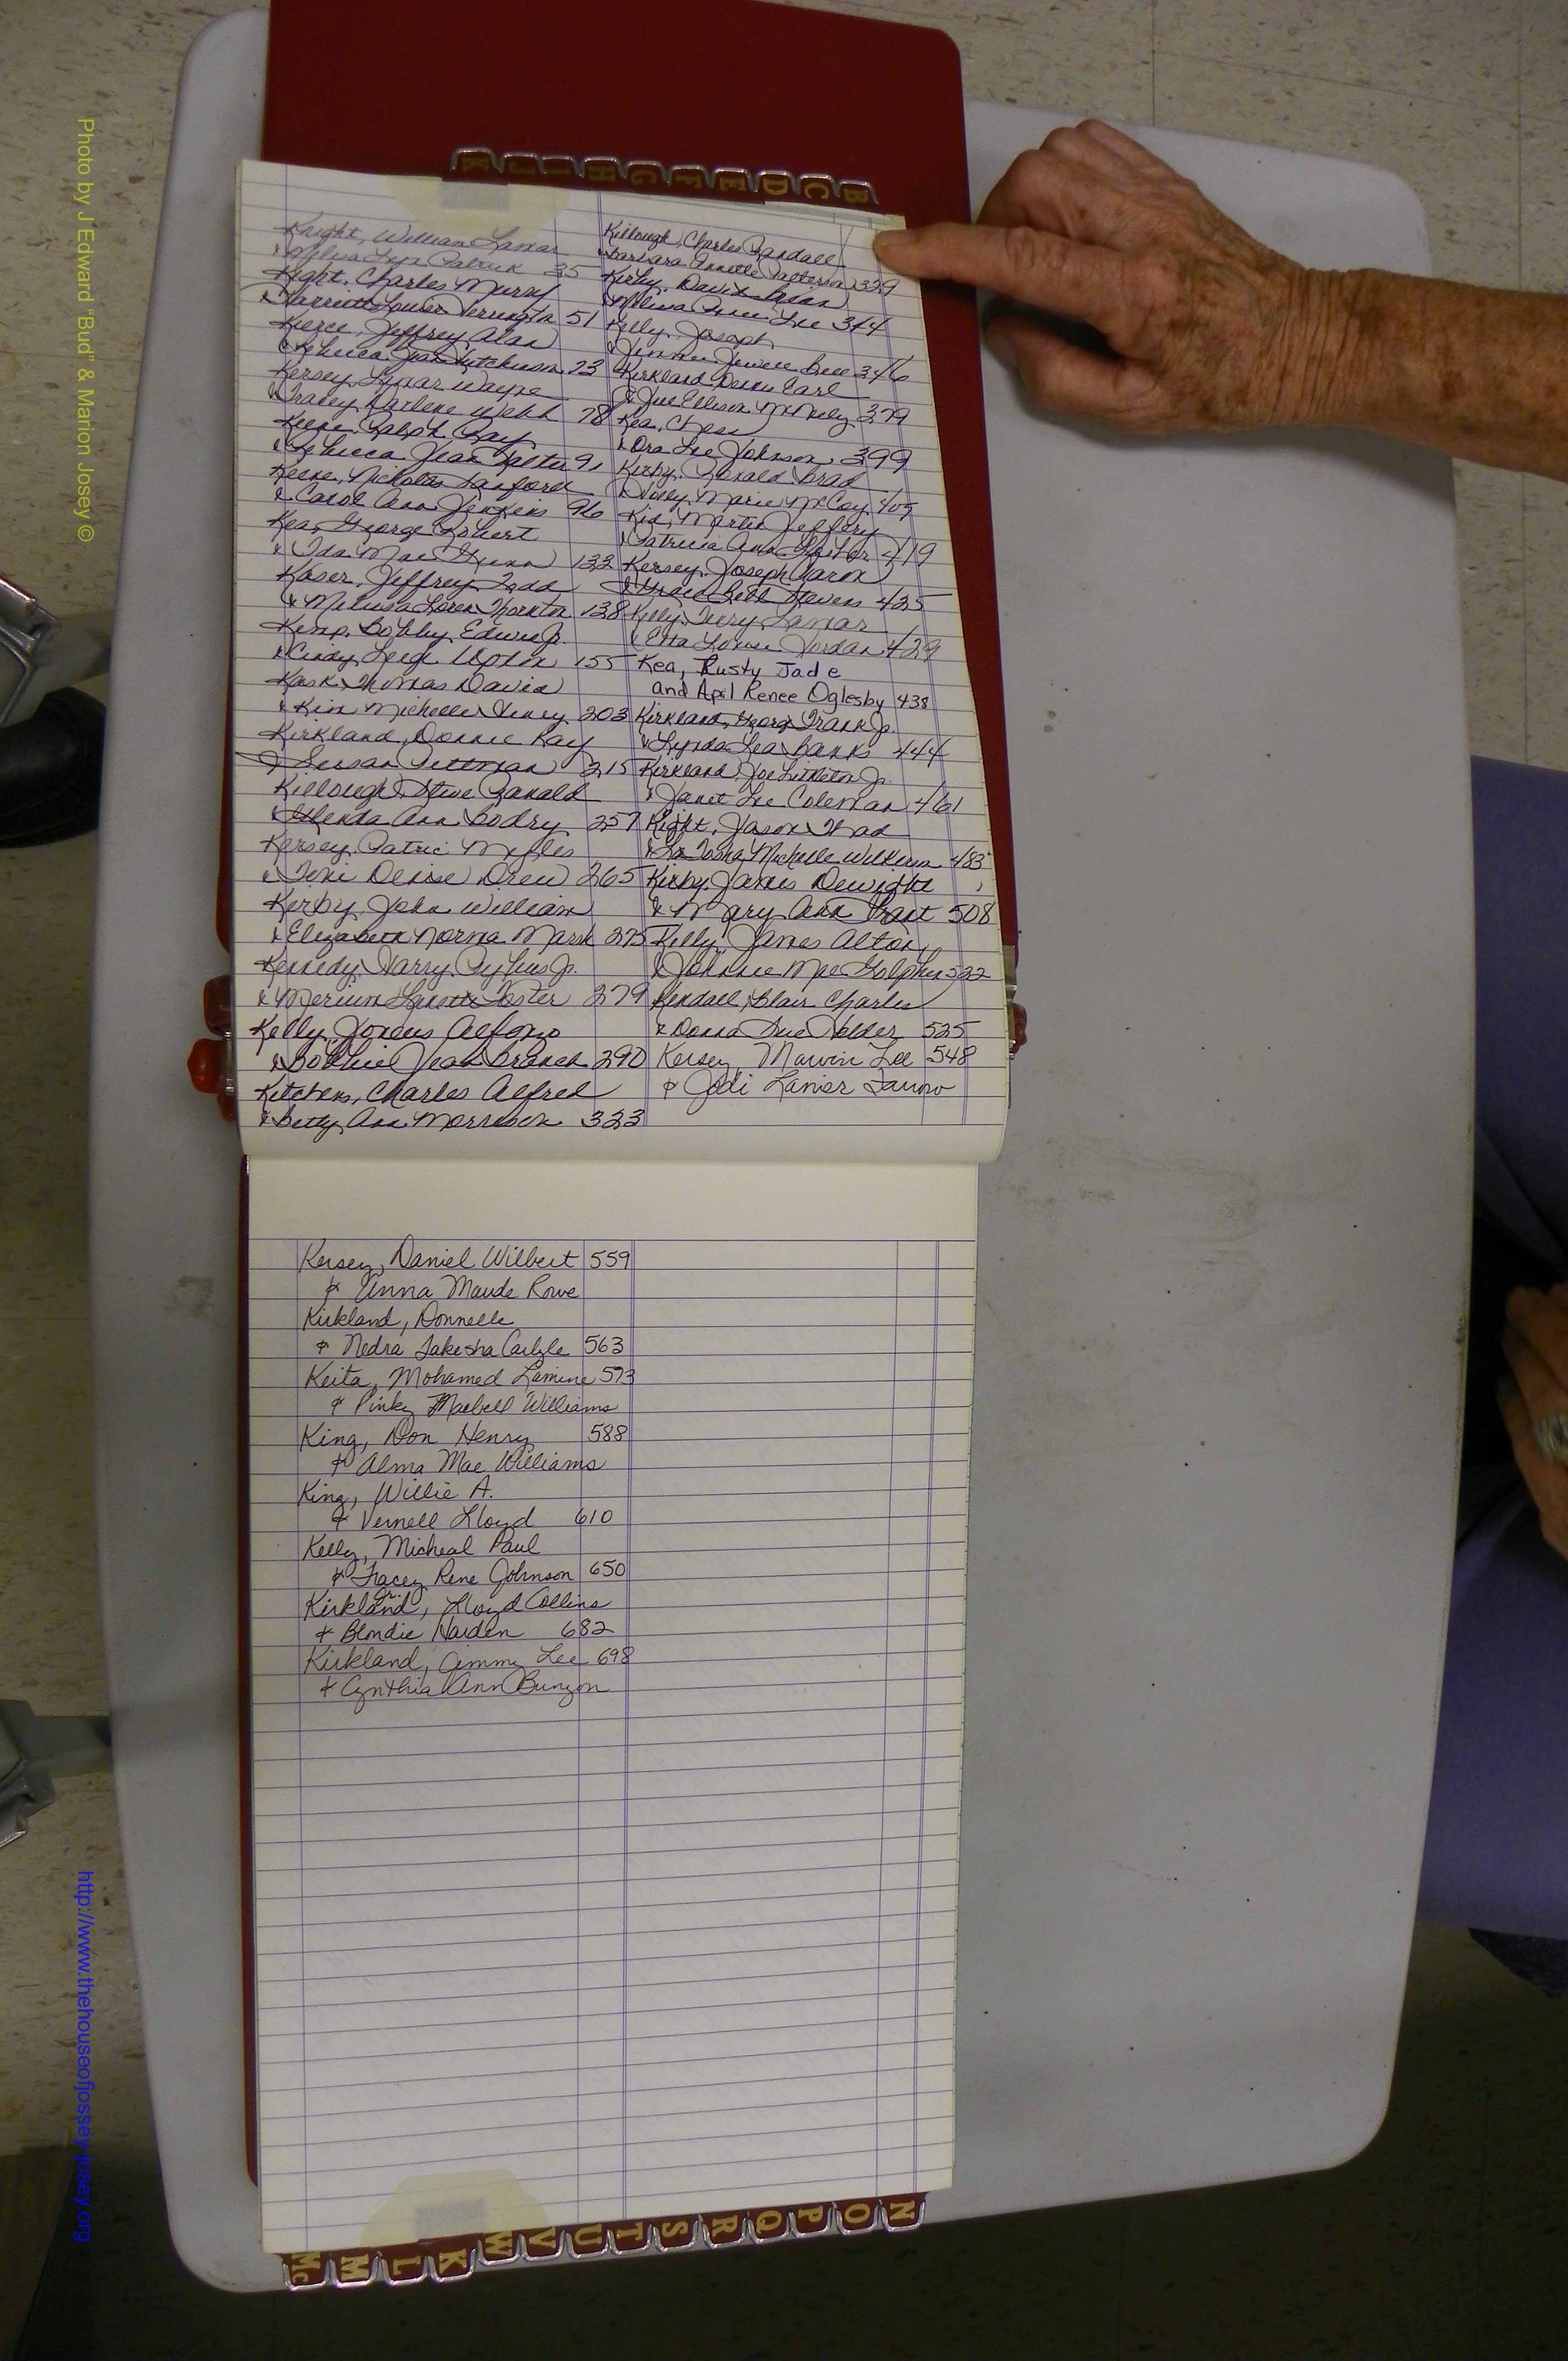 Knight, William Lamar
& Melisa Lyn Patrick 35
Kight, Charles Murry
& Harriett Louise 51
Kierce, Jeffrey Alan
& Rebecca Jean Hutcheson 73
Kersey, Lamar Wayne
& Tracey Darlene Webb 78
Keene, Ralph Ray
& Rebecca Jean 91
Keene, Nicholas Sanford
& Carol Ann Jenkins 96
Kea, George Robert
& Ida Mae 133
Kaser, Jeffrey Todd
& Melissa Loren Thornton 138
Kemp, Bobby Edwin Jr.
& Cindy Leigh Upton 155
Kask, Thomas David
& Kim Michelle 203
Kirkland, Donnie Ray
& Susan Pittman 215
Killough, Steve Ranald
& Glenda Ann Bodry 257
Kersey, Patric
& Toni Denise Drew 265
Kerby, John William
& Elizabeth Norma Mark 275
Kennedy, Harry Jr.
& Foster 279
Kelly, Alfonso
& Bobbie Jean Branch 290
Kitchens, Charles Alfred
& Betty Ann Morrison 323
Killough, Charles Randall
& Barbara Annette Patterson 329
Kirby, David
& Melissa Lee 344
Kelly, Joseph
& Jewell 346
Kirkland, Earl
& Sue Ellison McNeely 379
Kea,
& Ora Lee Johnson 399
Kirby, Ronald Brad
& Marie McCoy 409
Martin Jeffery
& Patricia Ann 419
Kersey, Joseph Aaron
& Beth Stevens 425
Kelly, Terry Lamar
& Etta Louise Jordan 429
Kea, Rusty Jade
and April Renee Oglesby 438
Kirkland, George Frank Jr.
& Lynda Lea Banks 444
Kirkland, Joe Littleton Jr.
& Janet Lee Coleman 461
Kight, Jason
& La Tosha Michelle Wilkerson 483
Kirby, James Dewight
& Mary Ann 508
Kelly, James Alton
& Johnnie Mae 522
Kendall, Blair Charles
& Donna Sue Holder 525
Kersey, Marvin Lee 548
& Jodi Lanier
Kersey, Daniel Wilbert 559
& Anna Maude Rowe
Kirkland, Donnelle
& Nedra Takesha Carlyle 563
Keita, Mohamed Lamine 573
& Pinky Maebell Williams
King, Don Henry 588
& Alma Mae Williams
King, Willie A.
& Vernell Lloyd 610
Kelly, Micheal Paul
& Tracey Rene Johnson 650
Kirkland, Lloyd Collins
& Blondie Harden 682
Kirkland, Jimmy Lee 698
& Cynthia Ann Bunyon
K J I H G F E D C B
Mc M L K W V U T S R Q P O N
Photo by J Edward "Bud" & Marion Josey ©
http://www.thehouseofjossey-josey.org